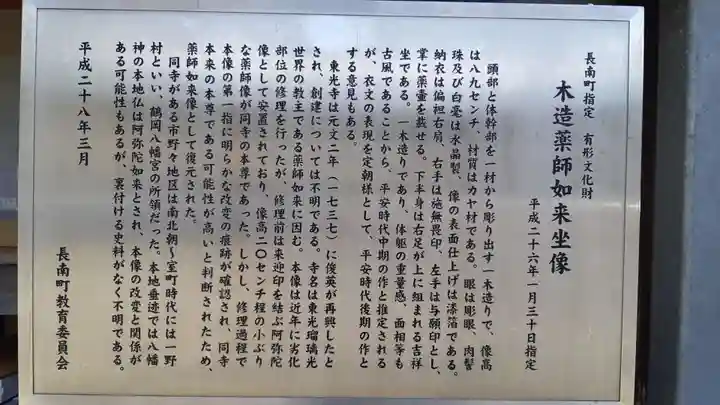 長南町指定 有形文化財
木造薬師如来坐像
平成二十六年一月三十日指定
頭部と体幹部を一材から彫り出す一木造りで、像高
は八九センチ、材質はカヤ材である。眼は彫眼、肉髻
珠及び白毫は水晶製、像の表面仕上げは漆箔である。
納衣は偏袒右肩、右手は施無畏印、左手は与願印とし、
掌に薬壷を載せる。下半身は右足が上に組まれる吉祥
坐である。一木造りであり、体躯の重量感、面相等も
古風であることから、平安時代中期の作と推定される
が、衣文の表現を定朝様として、平安時代後期の作と
する意見もある。
東光寺は元文二年（一七三七）に俊英が再興したと
され、創建については不明である。寺名は東光瑠璃光
世界の教主である薬師如来に因む。本像は近年に劣化
部位の修理を行ったが、修理前は来迎印を結ぶ阿弥陀
像として安置されており、像高二〇センチ程の小ぶり
な薬師像が同寺の本尊であった。しかし、修理過程で
本像の第一指に明らかな改変の痕跡が確認され、同寺
本来の本尊である可能性が高いと判断されたため、
薬師如来像として復元された。
同寺がある市野々地区は南北朝～室町時代には一野
村といい、鶴岡八幡宮の所領だった。本地垂迹では八幡
神の本地仏は阿弥陀如来とされ、本像の改変と関係が
ある可能性もあるが、裏付ける史料がなく不明である。
平成二十八年三月
長南町教育委員会